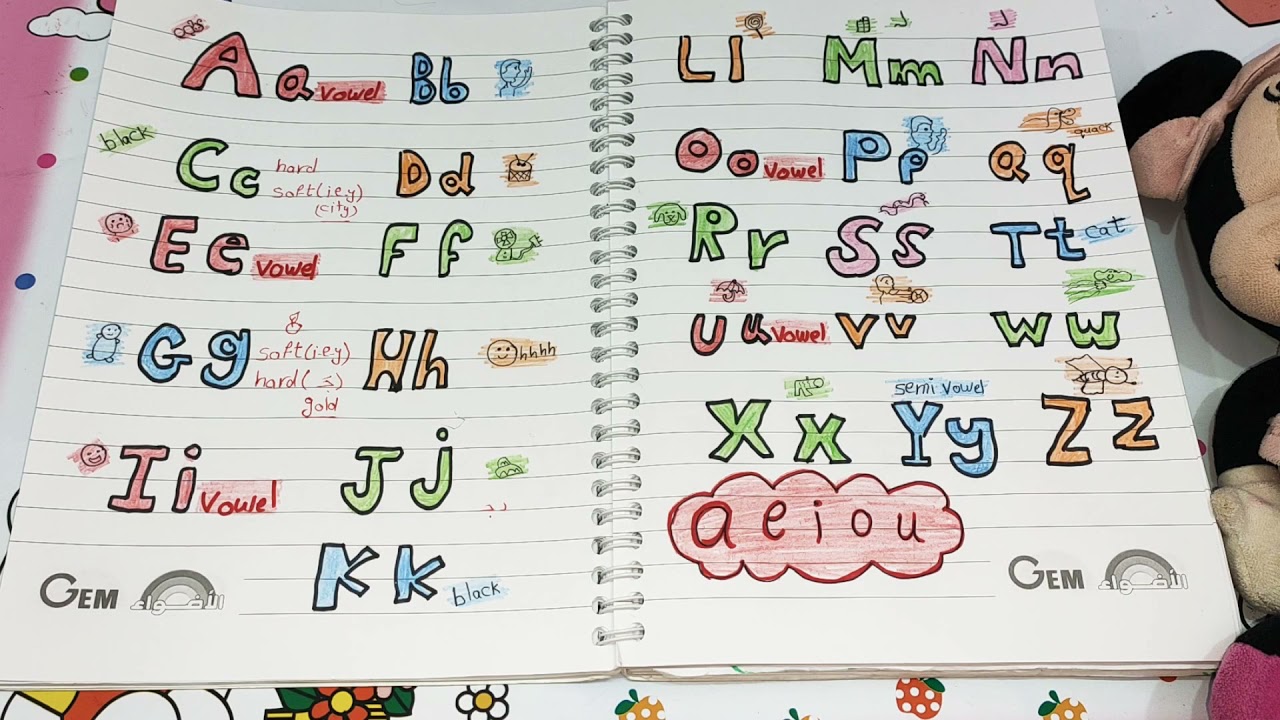 Aa vowel Bb
black
Cc hard Dd
soft(i.e.y)
(city)
Ee vowel Ff
Gg soft(i.e.y) Hh hhhh
hard( )
gold
Ii vowel Jj
Kk black
GEM الأضواء
Ll Mm Nn
Oo vowel Pp Qq quack
Rr Ss Tt cat
Uu vowel Vv Ww
semi vowel
Xx Yy Zz
a e i o u
GEM الأضواء